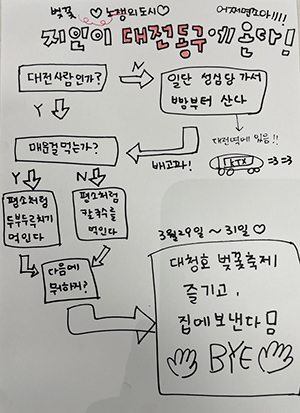 벚꽃 ♡ 논쟁의도시♡
어쩌면조아!!!!
지원이 대전동구에 온다!
대전사람인가?
N
일단 성심당 가서
빵부터 산다
Y
대전역에 있음!!
KTX
=3 =3
배고파!
매운걸먹는가?
Y
N
평소처럼
두부두루치기
먹인다
평소처럼
칼국수를
먹인다
다음에
뭐하지?
3월29일 ~ 31일 ♡
대청호 벚꽃축제
즐기고,
집에보낸다!
BYE